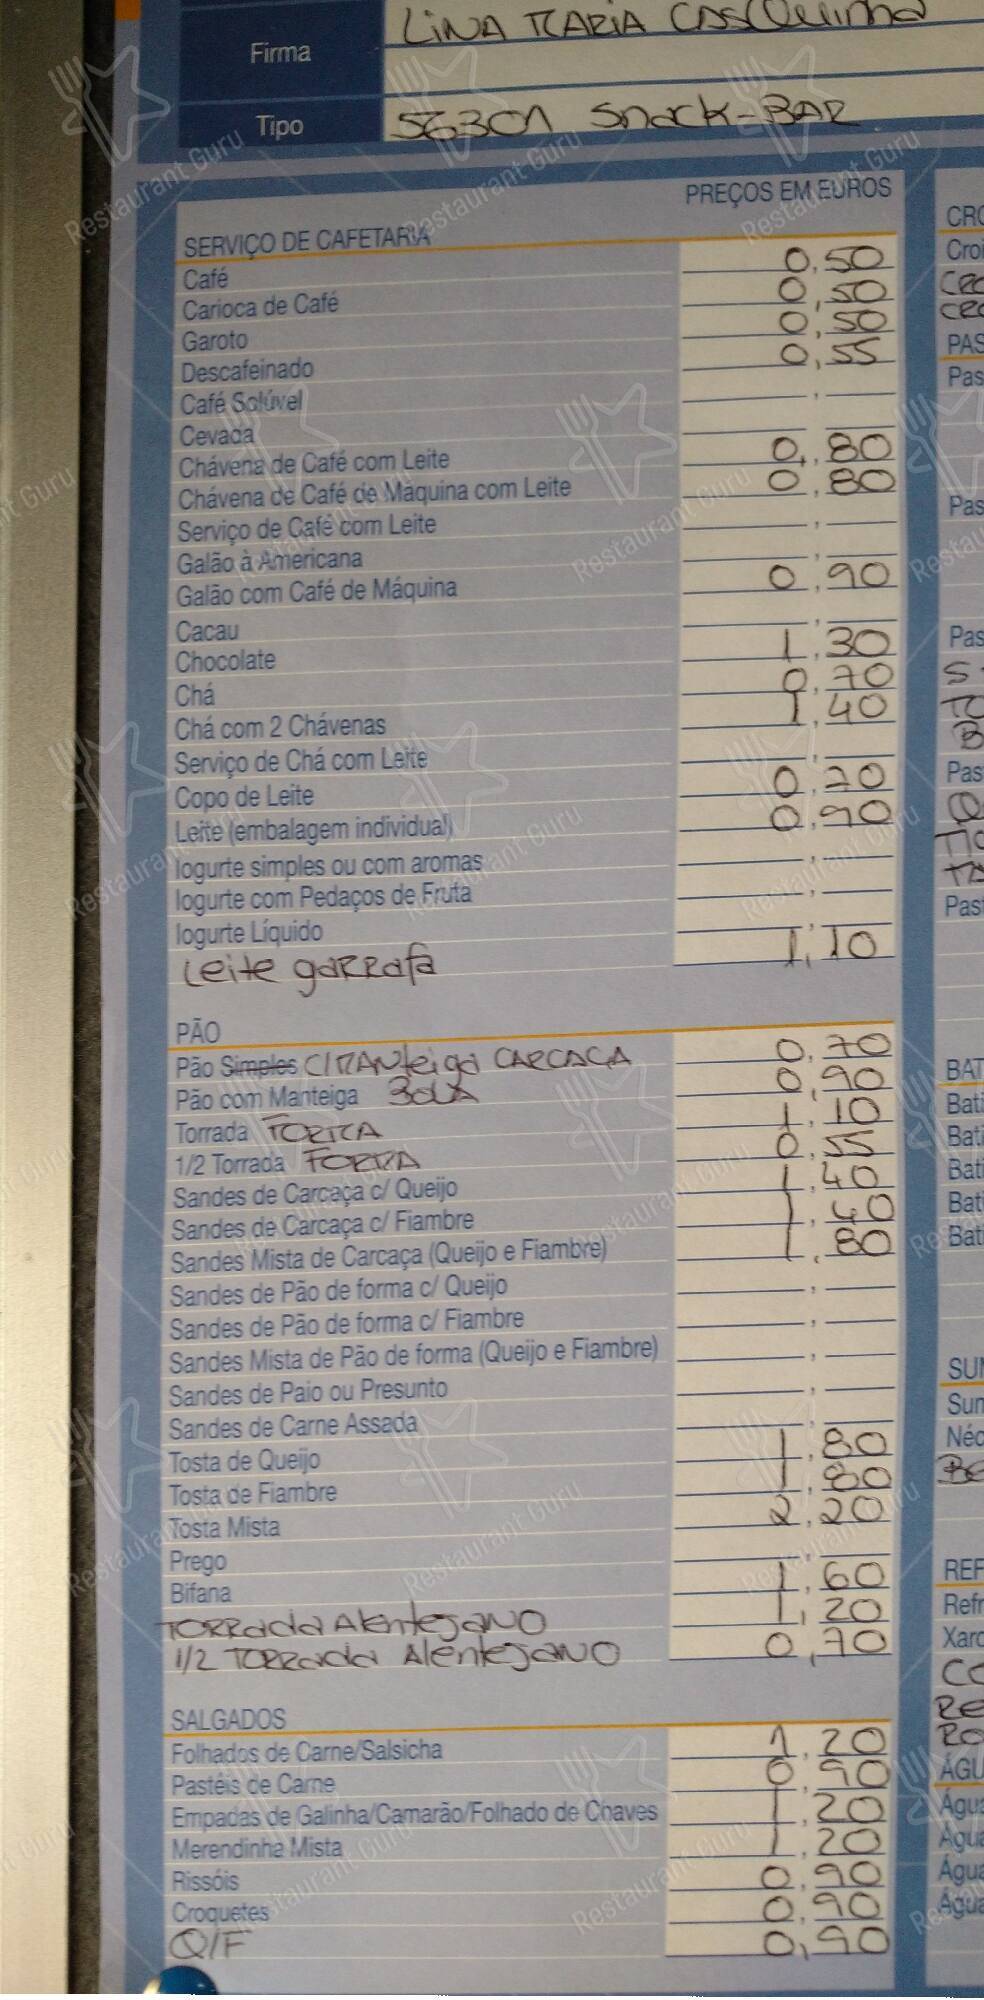 Firma LINA MARIA CASQUINHA
Tipo 56301 Snack-BAR
PREÇOS EM EUROS
SERVIÇO DE CAFETARIA
Café 0,50
Carioca de Café 0,50
Garoto 0,50
Descafeinado 0,55
Café Solúvel ,
Cevada ,
Chávena de Café com Leite 0,80
Chávena de Café de Máquina com Leite 0,80
Serviço de Café com Leite ,
Galão à Americana ,
Galão com Café de Máquina 0,90
Cacau ,
Chocolate 1,30
Chá 0,70
Chá com 2 Chávenas 1,40
Serviço de Chá com Leite ,
Copo de Leite 0,70
Leite (embalagem individual) 0,90
Iogurte simples ou com aromas ,
Iogurte com Pedaços de Fruta ,
Iogurte Líquido ,
Leite gaRRafa 1,10
PÃO
Pão Simples C/MANteiga CARCAÇA 0,70
Pão com Manteiga BOLA 0,90
Torrada FORMA 1,10
1/2 Torrada FORMA 0,55
Sandes de Carcaça c/ Queijo 1,40
Sandes de Carcaça c/ Fiambre 1,40
Sandes Mista de Carcaça (Queijo e Fiambre) 1,80
Sandes de Pão de forma c/ Queijo ,
Sandes de Pão de forma c/ Fiambre ,
Sandes Mista de Pão de forma (Queijo e Fiambre) ,
Sandes de Paio ou Presunto ,
Sandes de Carne Assada ,
Tosta de Queijo 1,80
Tosta de Fiambre 1,80
Tosta Mista 2,20
Prego ,
Bifana 1,60
TORRada AlentejaNO 1,20
1/2 TORRada AlentejaNO 0,70
SALGADOS
Folhados de Carne/Salsicha 1,20
Pastéis de Carne 0,90
Empadas de Galinha/Camarão/Folhado de Chaves 1,20
Merendinha Mista 1,20
Rissóis 0,90
Croquetes 0,90
Q/F 0,90
Restaurant Guru